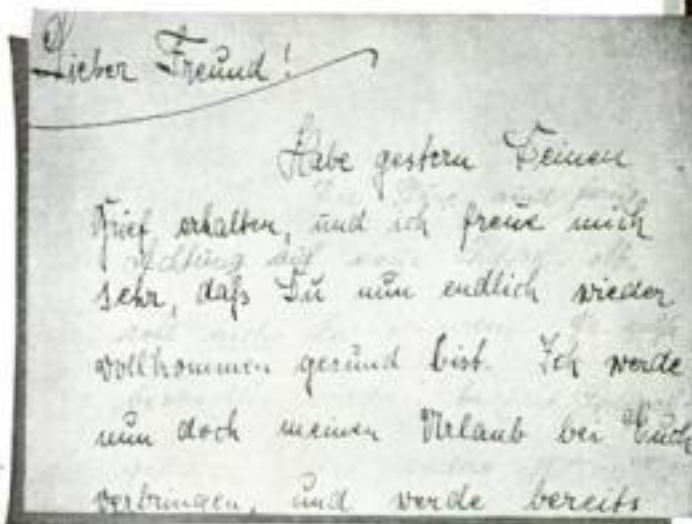 Lieber Freund!
Habe gestern Deinen
Brief erhalten, und ich freue mich
sehr, daß Du nun endlich wieder
vollkommen gesund bist. Ich werde
nun doch meinen Urlaub bei Euch
verbringen, und werde bereits